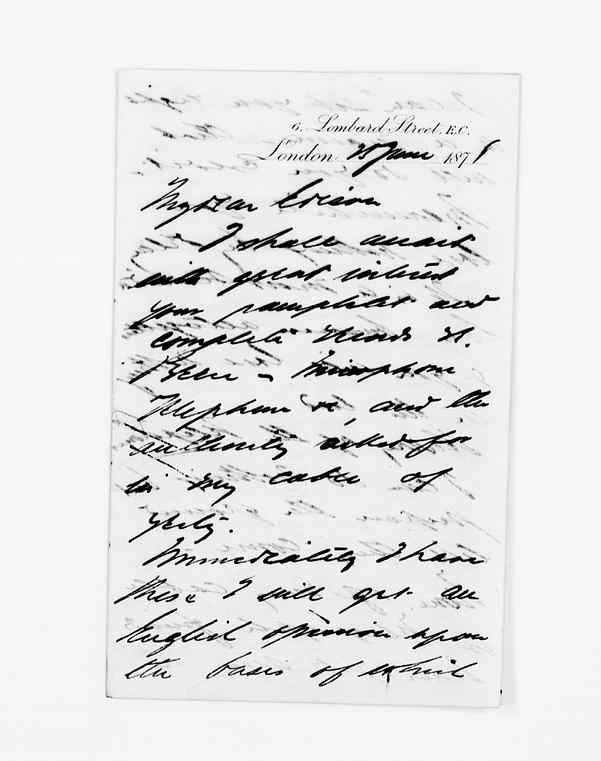 6. Lombard Street, E.C.
London 25 June 1878
My dear Edison
I shall await
with great interest
your pamphlet and
complete
microphone
Telephone &c, and the
authority asked for
in my cable of
yesty.
Immediately I have
these I will get an
English opinion upon
the basis of which